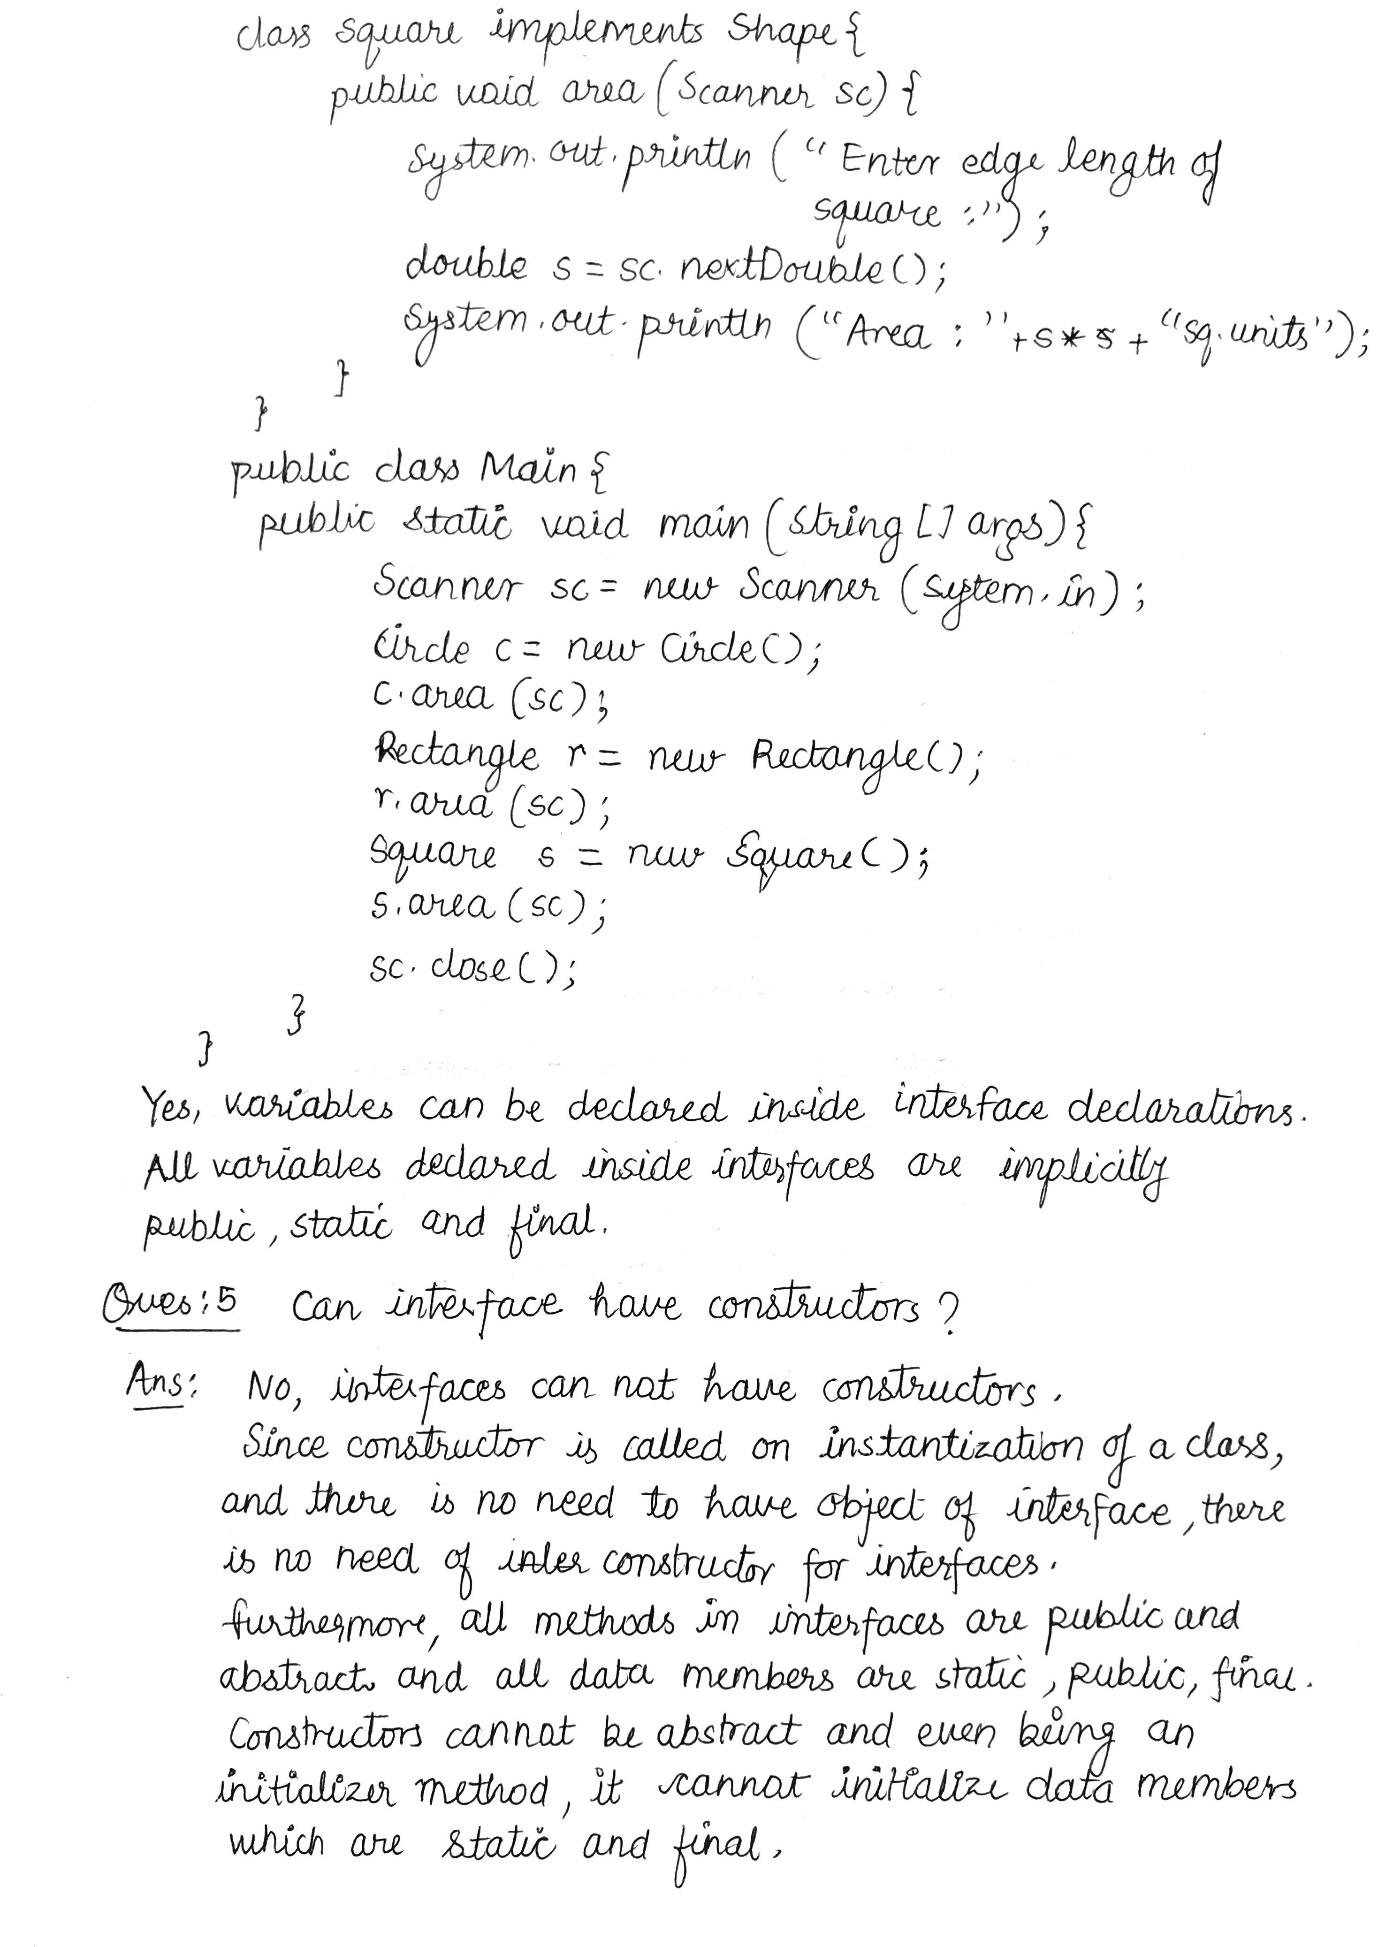 class Square implements Shape {
public void area (Scanner sc) {
System.out.println ( "Enter edge length of
square :");
double s = sc.nextDouble();
System.out.println ("Area : "+s*s+ "sq.units");
}
}
public class Main {
public static void main (String [] args) {
Scanner sc = new Scanner (Sytem.in);
Circle c = new Circle();
c.area (sc);
Rectangle r = new Rectangle();
r.area (sc);
Square s = new Square();
s.area (sc);
sc.close();
}
}
Yes, variables can be declared inside interface declarations.
All variables declared inside interfaces are implicitly
public, static and final.
Ques:5 Can interface have constructors?
Ans: No, interfaces can not have constructors.
Since constructor is called on instantization of a class,
and there is no need to have object of interface, there
is no need of inter constructor for interfaces.
furthermore, all methods in interfaces are public and
abstract and all data members are static, public, final.
Constructors cannot be abstract and even being an
initializer method, it cannot initialize data members
which are static and final.